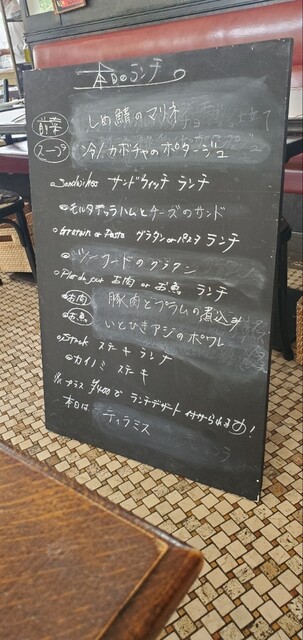 本日のランチ
前菜 しめ鯖のマリネ
スープ 冷/カボチャのポタージュ
Sandwiches サンドウィッチ ランチ
モルタデッラハムとチーズのサンド
Gratin or Pasta グラタン or パスタ ランチ
シーフードのグラタン
Plado お肉 or お魚 ランチ
お肉 豚肉とプラムの煮込み
お魚 いとひきアジのポワレ
Steak ステーキ ランチ
カイノミ ステーキ
プラス ¥400で ランチデザート 付けられます!
本日は ティラミス